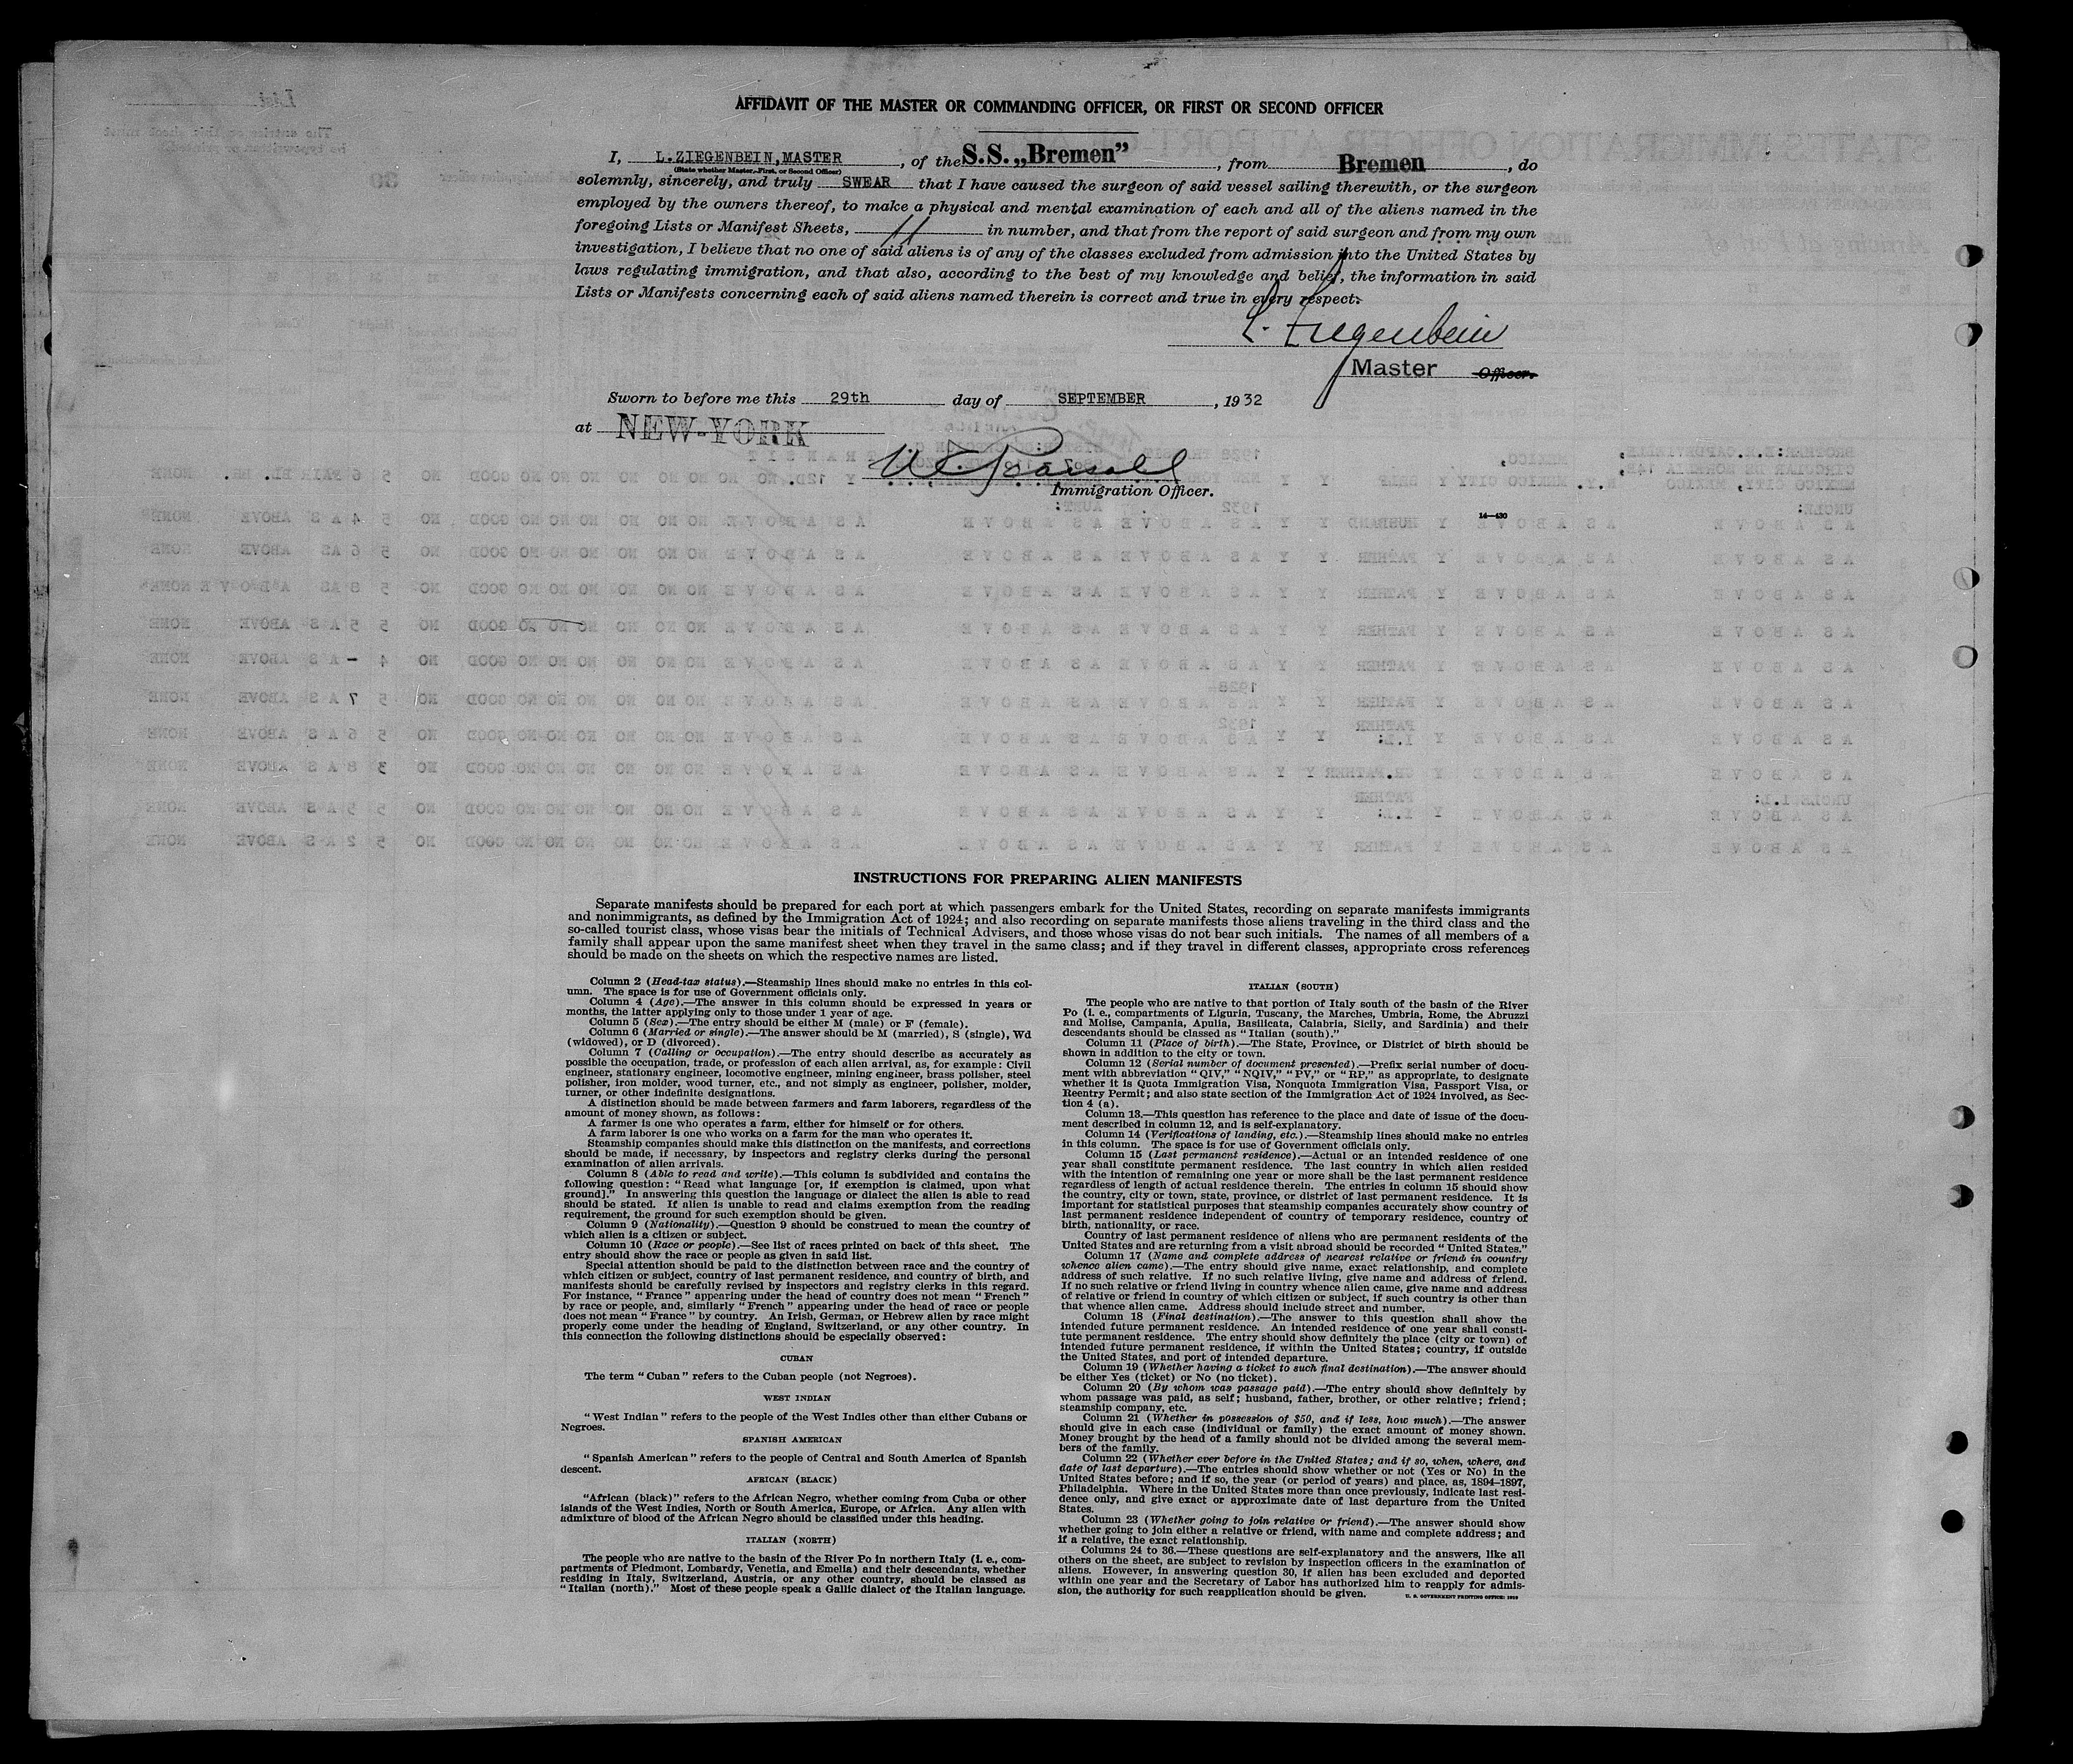 AFFIDAVIT OF THE MASTER OR COMMANDING OFFICER, OR FIRST OR SECOND OFFICER
I, L. ZIEGENBEIN, MASTER, of the S.S. „Bremen”, from Bremen, do
(State whether Master, First, or Second Officer)
solemnly, sincerely, and truly SWEAR that I have caused the surgeon of said vessel sailing therewith, or the surgeon
employed by the owners thereof, to make a physical and mental examination of each and all of the aliens named in the
foregoing Lists or Manifest Sheets, 11 in number, and that from the report of said surgeon and from my own
investigation, I believe that no one of said aliens is of any of the classes excluded from admission into the United States by
laws regulating immigration, and that also, according to the best of my knowledge and belief, the information in said
Lists or Manifests concerning each of said aliens named therein is correct and true in every respect.
L. Ziegenbein
Master Officer.
Sworn to before me this 29th day of SEPTEMBER, 1932
at NEW-YORK
Immigration Officer.
14—430
INSTRUCTIONS FOR PREPARING ALIEN MANIFESTS
Separate manifests should be prepared for each port at which passengers embark for the United States, recording on separate manifests immigrants
and nonimmigrants, as defined by the Immigration Act of 1924; and also recording on separate manifests those aliens traveling in the third class and the
so-called tourist class, whose visas bear the initials of Technical Advisers, and those whose visas do not bear such initials. The names of all members of a
family shall appear upon the same manifest sheet when they travel in the same class; and if they travel in different classes, appropriate cross references
should be made on the sheets on which the respective names are listed.
Column 2 (Head-tax status).—Steamship lines should make no entries in this col-
umn. The space is for use of Government officials only.
Column 4 (Age).—The answer in this column should be expressed in years or
months, the latter applying only to those under 1 year of age.
Column 5 (Sex).—The entry should be either M (male) or F (female).
Column 6 (Married or single).—The answer should be M (married), S (single), Wd
(widowed), or D (divorced).
Column 7 (Calling or occupation).—The entry should describe as accurately as
possible the occupation, trade, or profession of each alien arrival, as, for example: Civil
engineer, stationary engineer, locomotive engineer, mining engineer, brass polisher, steel
polisher, iron molder, wood turner, etc., and not simply as engineer, polisher, molder,
turner, or other indefinite designations.
A distinction should be made between farmers and farm laborers, regardless of the
amount of money shown, as follows:
A farmer is one who operates a farm, either for himself or for others.
A farm laborer is one who works on a farm for the man who operates it.
Steamship companies should make this distinction on the manifests, and corrections
should be made, if necessary, by inspectors and registry clerks during the personal
examination of alien arrivals.
Column 8 (Able to read and write).—This column is subdivided and contains the
following question: “Read what language [or, if exemption is claimed, upon what
ground].” In answering this question the language or dialect the alien is able to read
should be stated. If alien is unable to read and claims exemption from the reading
requirement, the ground for such exemption should be given.
Column 9 (Nationality).—Question 9 should be construed to mean the country of
which alien is a citizen or subject.
Column 10 (Race or people).—See list of races printed on back of this sheet. The
entry should show the race or people as given in said list.
Special attention should be paid to the distinction between race and the country of
which citizen or subject, country of last permanent residence, and country of birth, and
manifests should be carefully revised by inspectors and registry clerks in this regard.
For instance, “France” appearing under the head of country does not mean “French”
by race or people, and, similarly “French” appearing under the head of race or people
does not mean “France” by country. An Irish, German, or Hebrew alien by race might
properly come under the heading of England, Switzerland, or any other country. In
this connection the following distinctions should be especially observed:
CUBAN
The term “Cuban” refers to the Cuban people (not Negroes).
WEST INDIAN
“West Indian” refers to the people of the West Indies other than either Cubans or
Negroes.
SPANISH AMERICAN
“Spanish American” refers to the people of Central and South America of Spanish
descent.
AFRICAN (BLACK)
“African (black)” refers to the African Negro, whether coming from Cuba or other
islands of the West Indies, North or South America, Europe, or Africa. Any alien with
admixture of blood of the African Negro should be classified under this heading.
ITALIAN (NORTH)
The people who are native to the basin of the River Po in northern Italy (i. e., com-
partments of Piedmont, Lombardy, Venetia, and Emelia) and their descendants, whether
residing in Italy, Switzerland, Austria, or any other country, should be classed as
“Italian (north).” Most of these people speak a Gallic dialect of the Italian language.
ITALIAN (SOUTH)
The people who are native to that portion of Italy south of the basin of the River
Po (i. e., compartments of Liguria, Tuscany, the Marches, Umbria, Rome, the Abruzzi
and Molise, Campania, Apulia, Basilicata, Calabria, Sicily, and Sardinia) and their
descendants should be classed as “Italian (south).”
Column 11 (Place of birth).—The State, Province, or District of birth should be
shown in addition to the city or town.
Column 12 (Serial number of document presented).—Prefix serial number of docu-
ment with abbreviation “QIV,” “NQIV,” “PV,” or “RP,” as appropriate, to designate
whether it is Quota Immigration Visa, Nonquota Immigration Visa, Passport Visa, or
Reentry Permit; and also state section of the Immigration Act of 1924 involved, as Sec-
tion 4 (a).
Column 13.—This question has reference to the place and date of issue of the docu-
ment described in column 12, and is self-explanatory.
Column 14 (Verifications of landing, etc.).—Steamship lines should make no entries
in this column. The space is for use of Government officials only.
Column 15 (Last permanent residence).—Actual or an intended residence of one
year shall constitute permanent residence. The last country in which alien resided
with the intention of remaining one year or more shall be the last permanent residence
regardless of length of actual residence therein. The entries in column 15 should show
the country, city or town, state, province, or district of last permanent residence. It is
important for statistical purposes that steamship companies accurately show country of
last permanent residence independent of country of temporary residence, country of
birth, nationality, or race.
Country of last permanent residence of aliens who are permanent residents of the
United States and are returning from a visit abroad should be recorded “United States.”
Column 17 (Name and complete address of nearest relative or friend in country
whence alien came).—The entry should give name, exact relationship, and complete
address of such relative. If no such relative living, give name and address of friend.
If no such relative or friend living in country whence alien came, give name and address
of relative or friend in country of which citizen or subject, if such country is other than
that whence alien came. Address should include street and number.
Column 18 (Final destination).—The answer to this question shall show the
intended future permanent residence. An intended residence of one year shall consti-
tute permanent residence. The entry should show definitely the place (city or town) of
intended future permanent residence, if within the United States; country, if outside
the United States, and port of intended departure.
Column 19 (Whether having a ticket to such final destination).—The answer should
be either Yes (ticket) or No (no ticket).
Column 20 (By whom was passage paid).—The entry should show definitely by
whom passage was paid, as self; husband, father, brother, or other relative; friend;
steamship company, etc.
Column 21 (Whether in possession of $50, and if less, how much).—The answer
should give in each case (individual or family) the exact amount of money shown.
Money brought by the head of a family should not be divided among the several mem-
bers of the family.
Column 22 (Whether ever before in the United States; and if so, when, where, and
date of last departure).—The entries should show whether or not (Yes or No) in the
United States before; and if so, the year (or period of years) and place, as, 1894–1897,
Philadelphia. Where in the United States more than once previously, indicate last resi-
dence only, and give exact or approximate date of last departure from the United
States.
Column 23 (Whether going to join relative or friend).—The answer should show
whether going to join either a relative or friend, with name and complete address; and
if a relative, the exact relationship.
Columns 24 to 36.—These questions are self-explanatory and the answers, like all
others on the sheet, are subject to revision by inspection officers in the examination of
aliens. However, in answering question 30, if alien has been excluded and deported
within one year and the Secretary of Labor has authorized him to reapply for admis-
sion, the authority for such reapplication should be given.
U. S. GOVERNMENT PRINTING OFFICE: